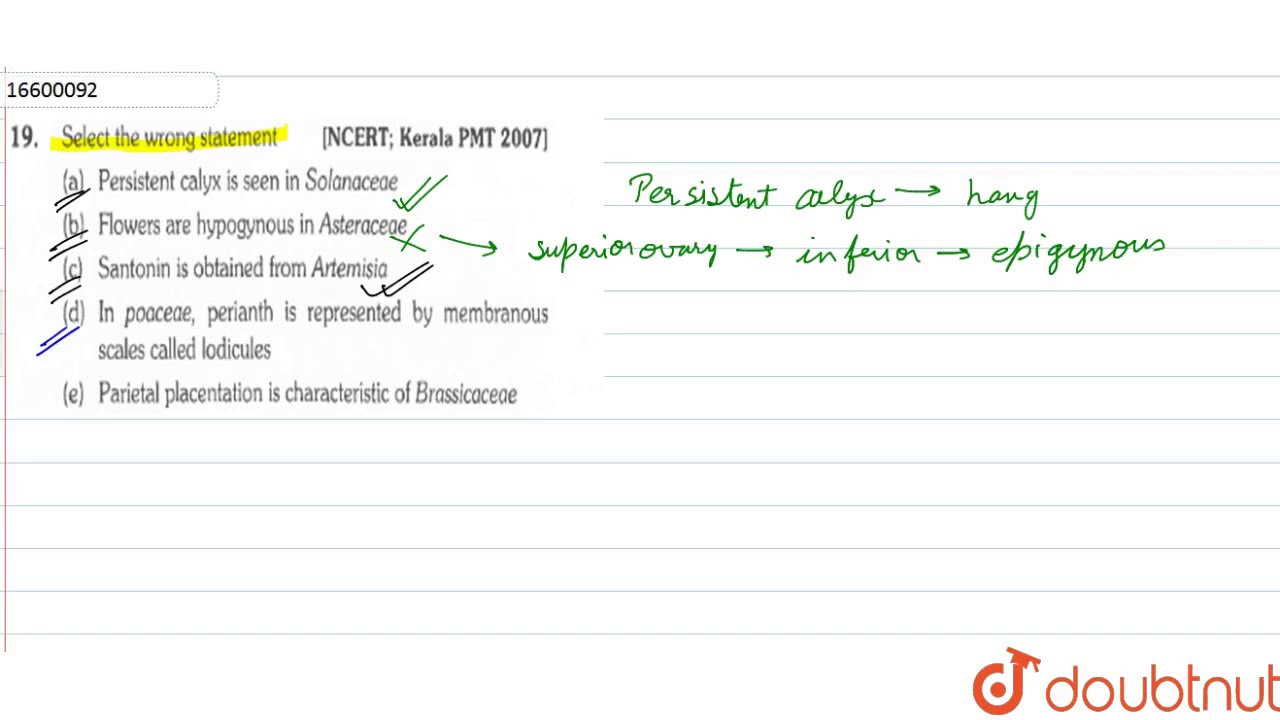 16600092
19. Select the wrong statement [NCERT; Kerala PMT 2007]
(a) Persistent calyx is seen in Solanaceae
Persistent calyx → hang
(b) Flowers are hypogynous in Asteraceae
superior ovary → inferior → epigynous
(c) Santonin is obtained from Artemisia
(d) In poaceae, perianth is represented by membranous
scales called lodicules
(e) Parietal placentation is characteristic of Brassicaceae
doubtnut